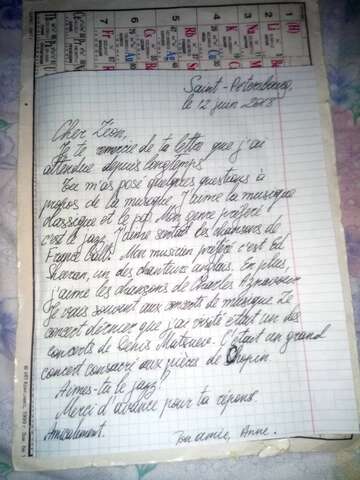 Saint-Petersbourg,
le 12 juin 2018
Cher Léon,
Je te remercie de ta lettre que j'ai
attendue depuis longtemps.
Tu m'as posé quelques questions à
propos de la musique. J'aime la musique
classique et le pop. Mon genre préféré
c'est le jazz. J'aime surtout les chansons de
France Gall. Mon musicien préféré c'est Ed
Sheeran, un des chanteurs anglais. En plus,
j'aime les chansons de Charles Aznavour
Je vais souvent aux concerts de musique. Le
concert dernier que j'ai visité était un des
concerts de Denis Matsuev. C'était un grand
concert consacré aux pièces de Chopin
Aimes-tu le jazz?
Merci d'avance pour ta répons.
Amicalement.
Ton amie, Anne.